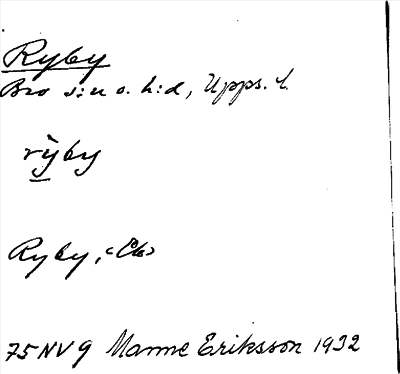 Ryby
Bro s:n o. h:d, Upps. l.
rỳby
Ryby,
75 NV 9 Manne Eriksson 1932